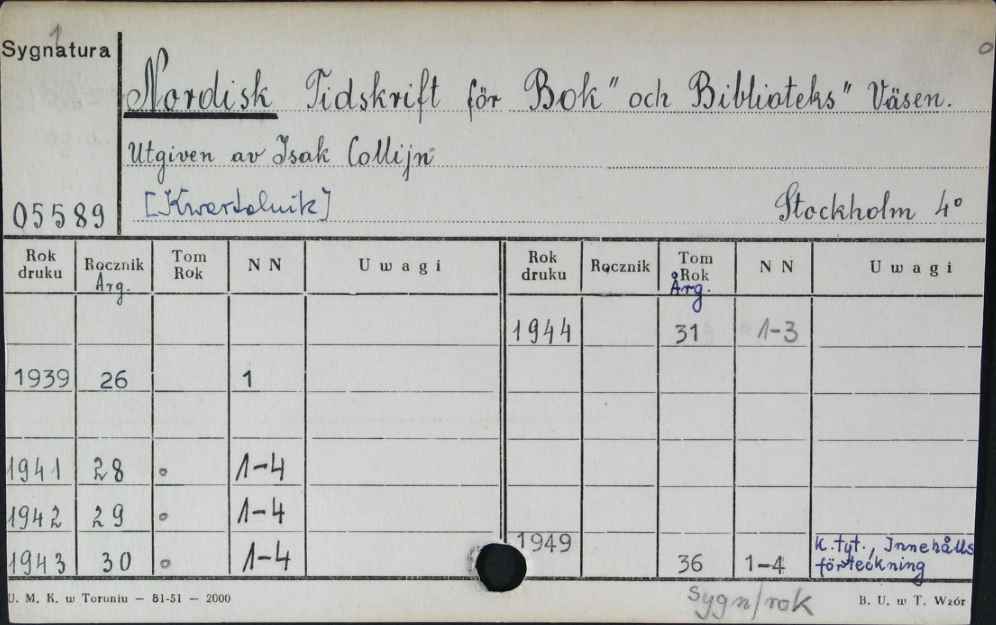 1
Sygnatura
Nordisk Tidskrift för Bok" och Biblioteks" Väsen.
Utgiven av Isak Collijn
05589 [Kwartalnik] Stockholm 4°
Rok druku Rocznik Arg. Tom Rok N N Uwagi Rok druku Rocznik Tom Rok Årg. N N Uwagi
1944 31 1-3
1939 26 1
1941 28 o 1-4
1942 29 o 1-4
1943 30 o 1-4 1949 36 1-4 K. tyt., Innehålls
förteckning
U. M. K. w Toruniu — 51-51 — 2000 Sygn/rok B. U. w T. Wzór